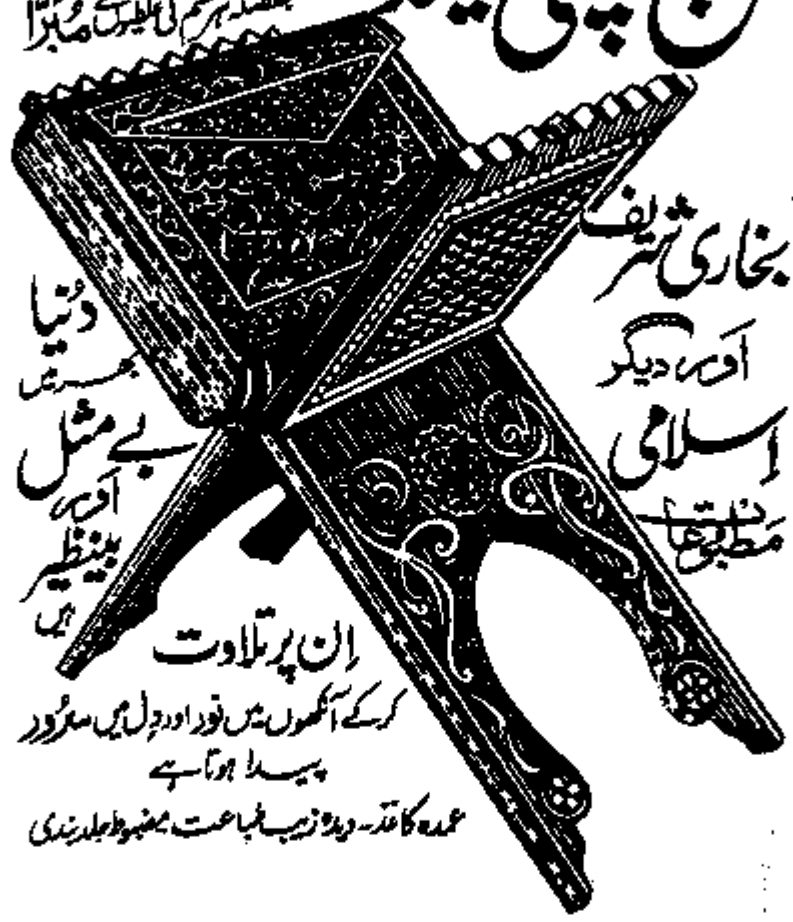 ہر قسم کی غلطیوں سے مُبَرَّا
بخاری شریف
اَور دیگر
اِسلامی
مَطبُوعات
دُنیا
بھر میں
بے مثل
اَور
بینظیر
ہیں
اِن پر تلاوت
کرکے آنکھوں میں نور اور دِل میں سرُور
پیدا ہوتا ہے
عمدہ کاغذ۔ دیدہ زیب طباعت مضبوط جلد بندی